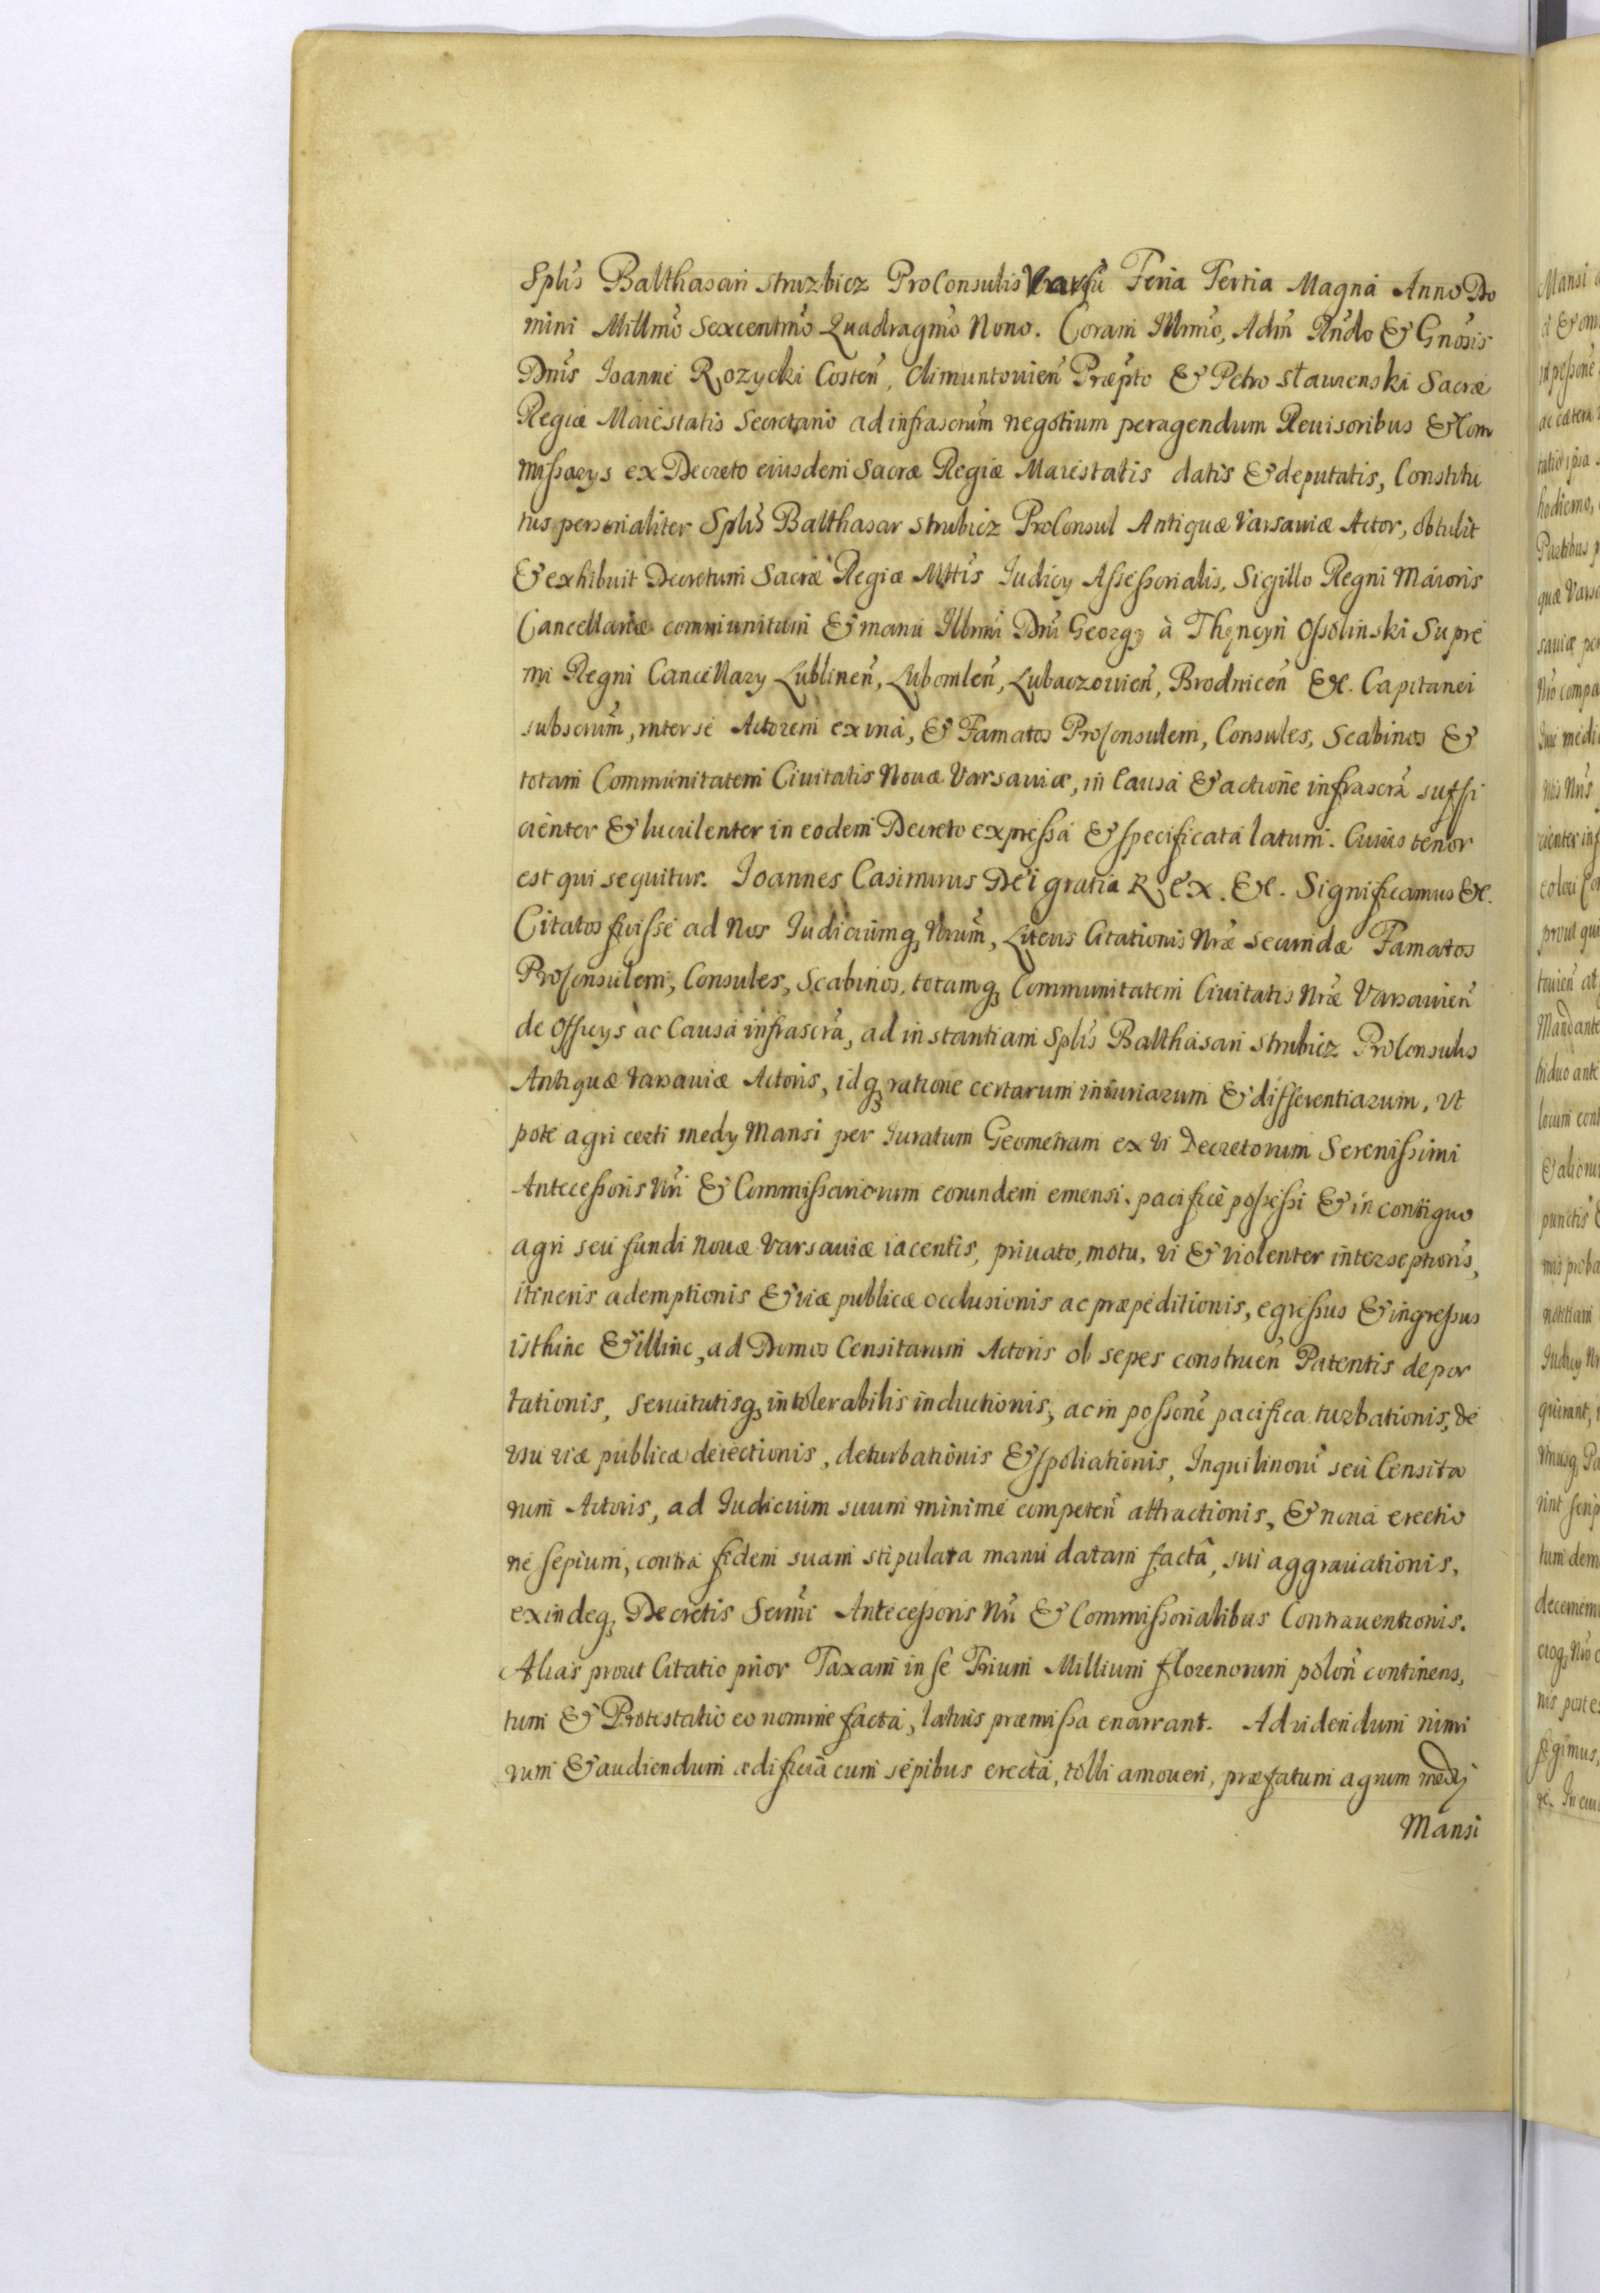 Splis Balthasari Struzbicz ProConsulis Varsa Feria Tertia Magna Anno Do
mini Millmo Sexcentmo Quadragmo Nono. Coram Illmo, Adm Rndo & Gnosis
Dnis Joanne Rozycki Costen, Climuntouien Præpto & Petro Stawenski Sacræ
Regiæ Maiestatis Secretario ad infrascrum negotium peragendum Reuisoribus & Com
missarys ex Decreto eiusdem Sacræ Regiæ Maiestatis datis & deputatis, Constitu
tus personaliter Splis Balthasar Strubicz ProConsul Antiquæ Varsauiæ Actor, obtulit
& exhibuit Decretum Sacræ Regiæ Mttis Judicy Assessorialis, Sigillo Regni Maioris
Cancellariæ communitum & manu Illmi Dni Georgy à Thęnczyn Ossolinski Supre
mi Regni Cancellary Lublinen, Lubomlen, Lubaczouien, Brodnicen &c. Capitanei
subscrum, inter se Actorem ex una, & Famatos ProConsulem, Consules, Scabinos &
totam Communitatem Ciuitatis Nouæ Varsauiæ, in Causa & actione infrascra suffi
cienter & luculenter in eodem Decreto expressa & specificata latum. Cuius tenor
est qui sequitur. Joannes Casimirus Dei gratia Rex. &c. Significamus &c.
Citatos fuisse ad Nos Judiciumq3 Nrum, Literis Citationis Nræ secundæ Famatos
ProConsulem, Consules, Scabinos, totamq3 Communitatem Ciuitatis Nræ Varsauien
de Officys ac Causa infrascra, ad instantiam Splis Balthasari Strubicz ProConsulis
Antiquæ Varsauiæ Actoris, idq3 ratione certarum iniuriarum & differentiarum, ut
pote agri certi medy Mansi per Juratum Geometram ex vi Decretorum Serenissimi
Antecessoris Nri & Commissariorum eorundem emensi, pacifice possessi & in contiguo
agri seu fundi Nouæ Varsauiæ iacentis, priuato, motu, vi & violenter interseptionis,
itineris ademptionis & viæ publicæ occlusionis ac præpeditionis, egressus & ingressus
isthinc & illinc, ad Domos Censitarum Actoris ob sepes construen Patentis depor
tationis, seruitutisq3 intolerabilis inductionis, ac in possone pacifica turbationis, de
usu viæ publicæ deiectionis, deturbationis & spoliationis, Inquilinoru seu Censita
rum Actoris, ad Judicium suum minime competen attractionis, & noua erectio
ne sepium, contra fidem suam stipulata manu datam facta, sui aggrauationis,
exindeq3 Decretis Sermi Antecessoris Nri & Commissorialibus Contrauentionis.
Alias prout Citatio prior Taxam in se Trium Millium florenorum polon continens,
tum & Protestatio eo nomine facta, latius præmissa enarrant. Ad videndum nimi
rum & audiendum ædificia cum sepibus erecta, tolli amoueri, præfatum agrum medy
Mansi